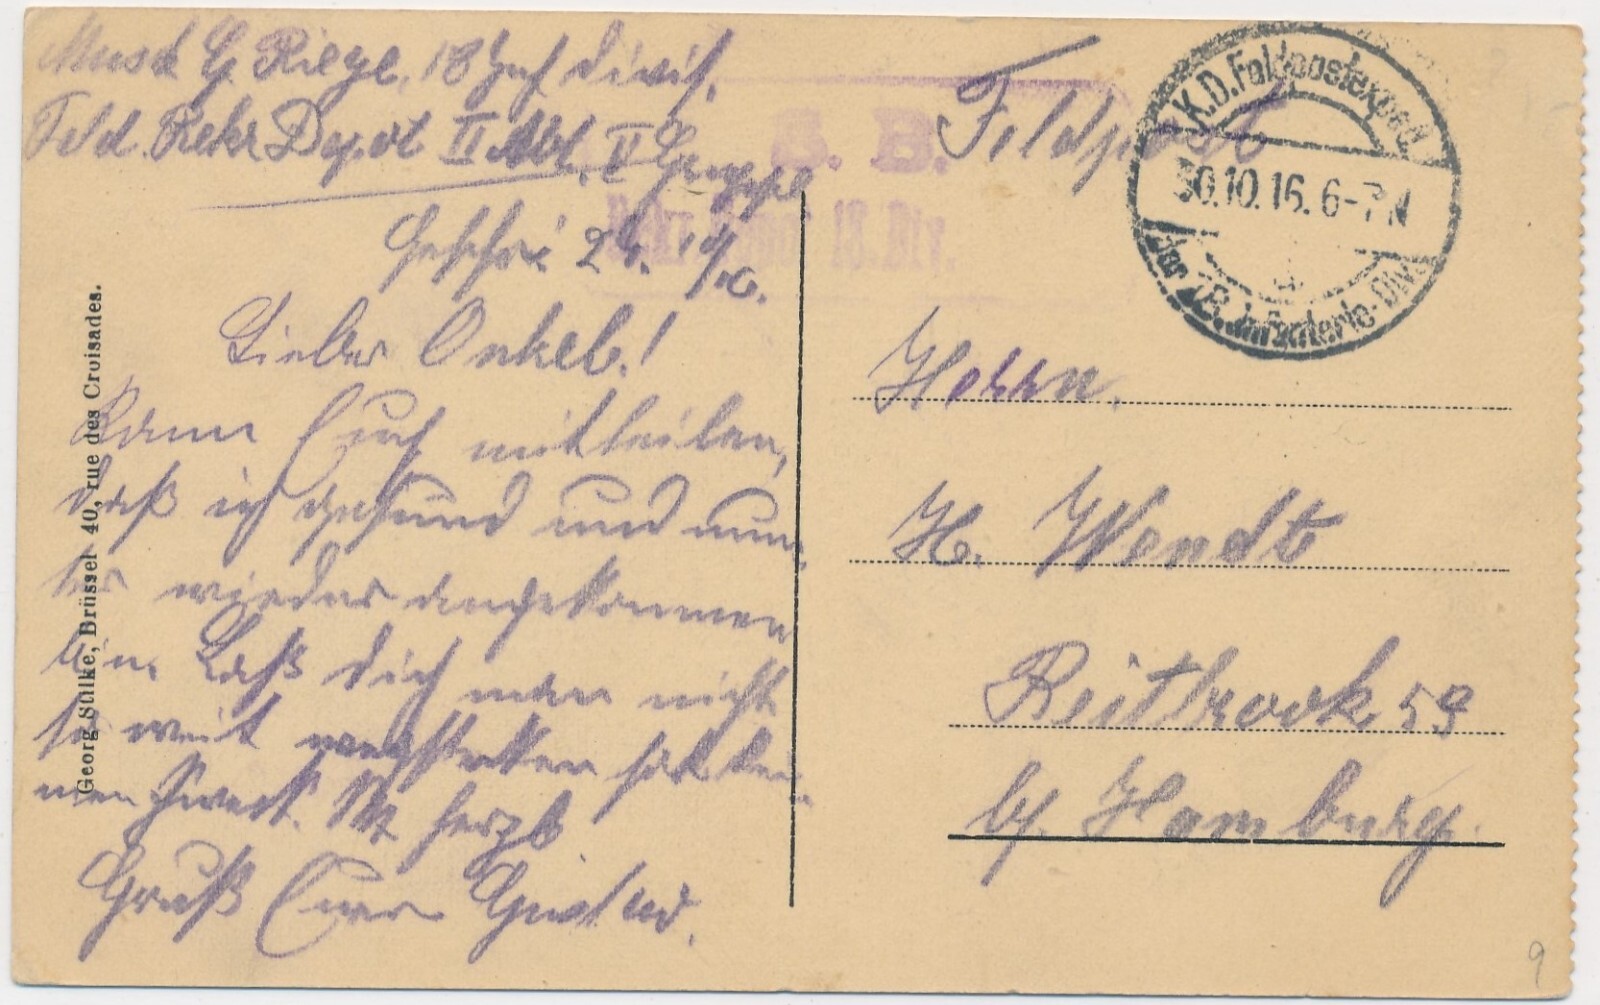 Musk G. Riege, 18 Inf Divis.
Feld. Rekr Depot II Abt. V Gruppe
Geschr. 29. 10/16.
Lieber Onkel!
Kann Euch mitteilen,
daß ich gesund und mun-
ter wieder angekommen
bin. Laß dich man nicht
so weit
Zweck. M. herzl
Gruß Euer Gustav.
Georg Stilke, Brüssel 40, rue des Croisades.
S. B.
Rekr. Depot 18. Div.
Feldpost
K.D. Feldpostexped.
30.10.16. 6-7 N
der 18. Infanterie-Div.
Herrn.
H. Wendt
Reitbrook 59
b/. Hamburg.
9